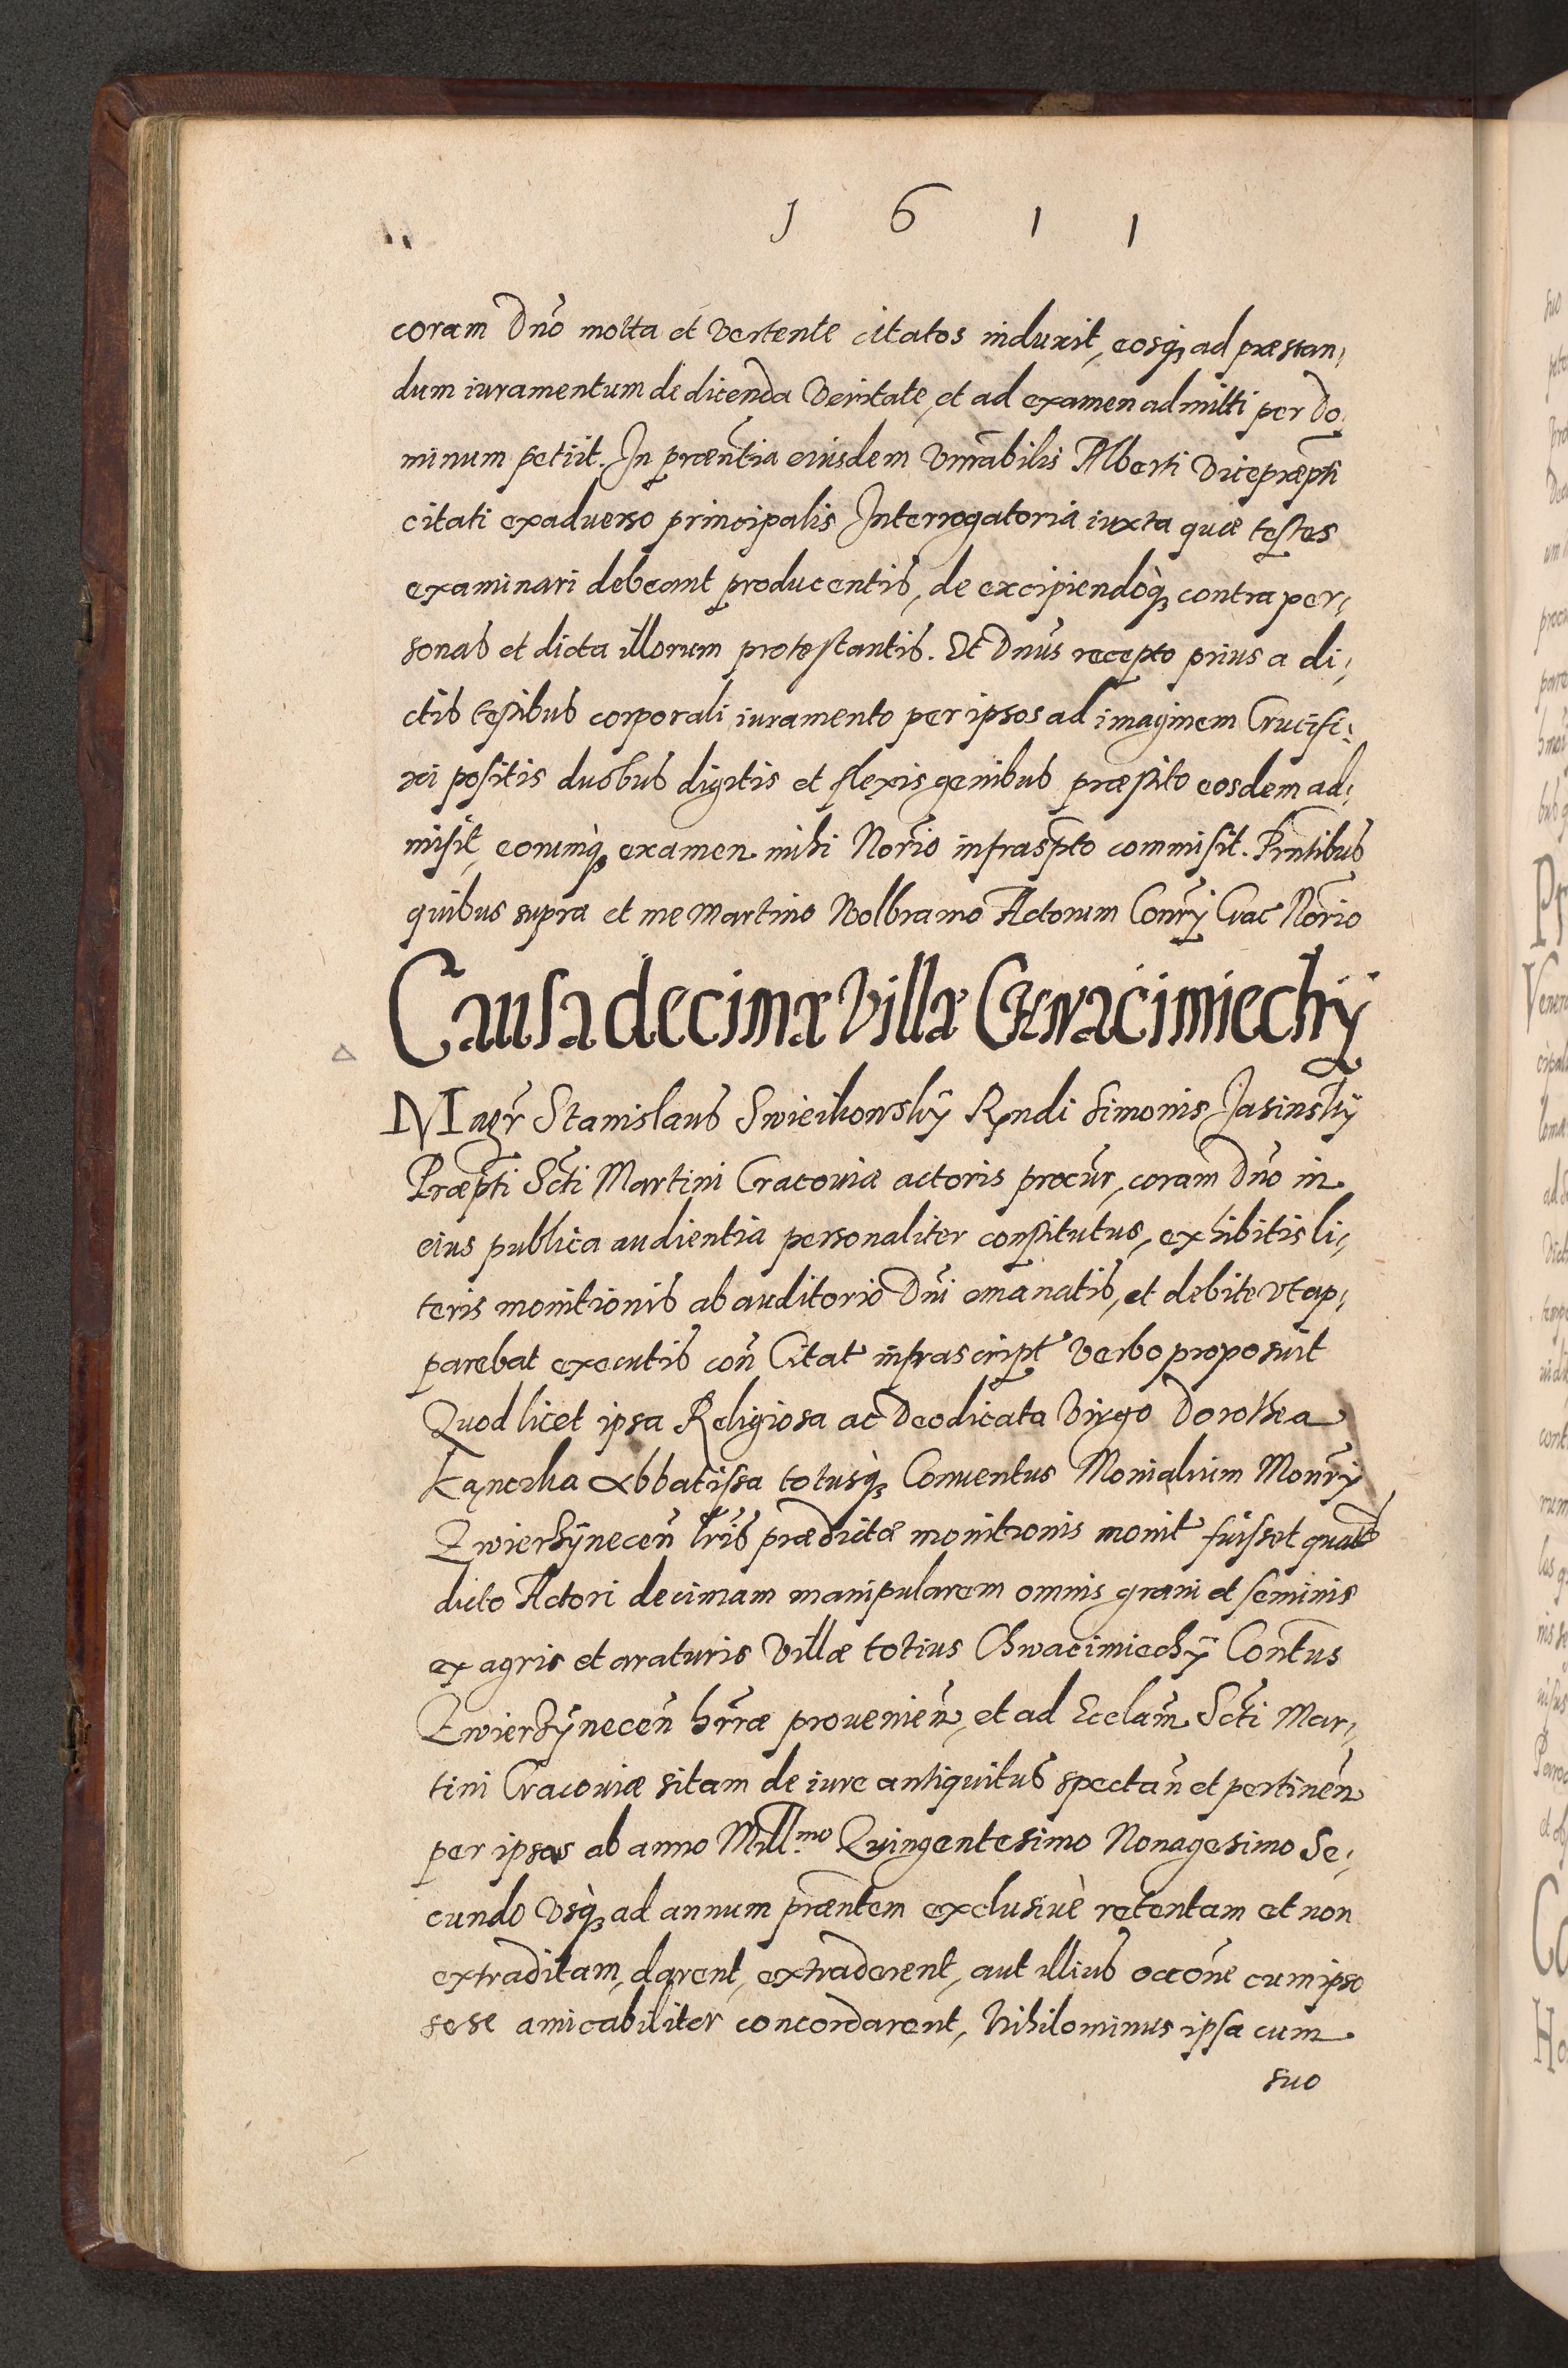 1 6 1 1
coram Dnō mota et vertente citatos induxit, eosq₃ ad præstan,
dum iuramentum de dicenda veritate, et ad examen admitti per Do,
minum petiit. In præntia eiusdem Vnrabilis Alberti Vicepræpti
citati exaduerso principalis Interrogatoria iuxta quæ testes
examinari debeant producentis, de excipiendoq₃ contra per,
sonas et dicta illorum protestantis. Et Dnūs recepto prius a di,
ctis testibus corporali iuramento per ipsos ad imaginem Crucifi,
xi positis duobus digitis et flexis genibus præstito eosdem ad,
misit, eorumq₃ examen mihi Norīo infraspto commisit. Prntibus
quibus supra et me Martino Wolbramo Actorum Consrÿ Crac Norīo
Causa decimæ Villæ Chwacimiechÿ
Magr̄ Stanislaus Swiezikowskÿ Rndi Simonis Jasinskÿ
Præpti Scti Martini Cracouiæ actoris procūr, coram Dnō in
eius publica audientia personaliter constitutus, exhibitis li,
teris monitionis ab auditorio Dnī emanatis, et debite vt ap,
parebat executis con̄ Citat infrascript verbo proposuit
Quod licet ipsa Religiosa ac Deodicata Virgo Dorothea
Kącrzka Abbatissa totusq₃ Conuentus Monialium Monrÿ
Zwierzÿnecen̄ lrīs prædictæ monitionis monit fuisset quate
dicto Actori decimam manipularem omnis grani et seminis
ex agris et araturis Villæ totius Chwacimiechÿ Contus
Zwierzÿnecen̄ hrræ prouenien̄, et ad Ecclam̄ Scti Mar,
tini Cracouiæ sitam de iure antiquitus spectan̄ et pertinen̄
per ipsas ab anno Mill.mo Quingentesimo Nonagesimo Se,
cundo vsq₃ ad annum præntem exclusiuè retentam et non
extraditam, darent, extraderent, aut illius occōne cum ipso
sese amicabiliter concordarent, Nihilominus ipsa cum
suo